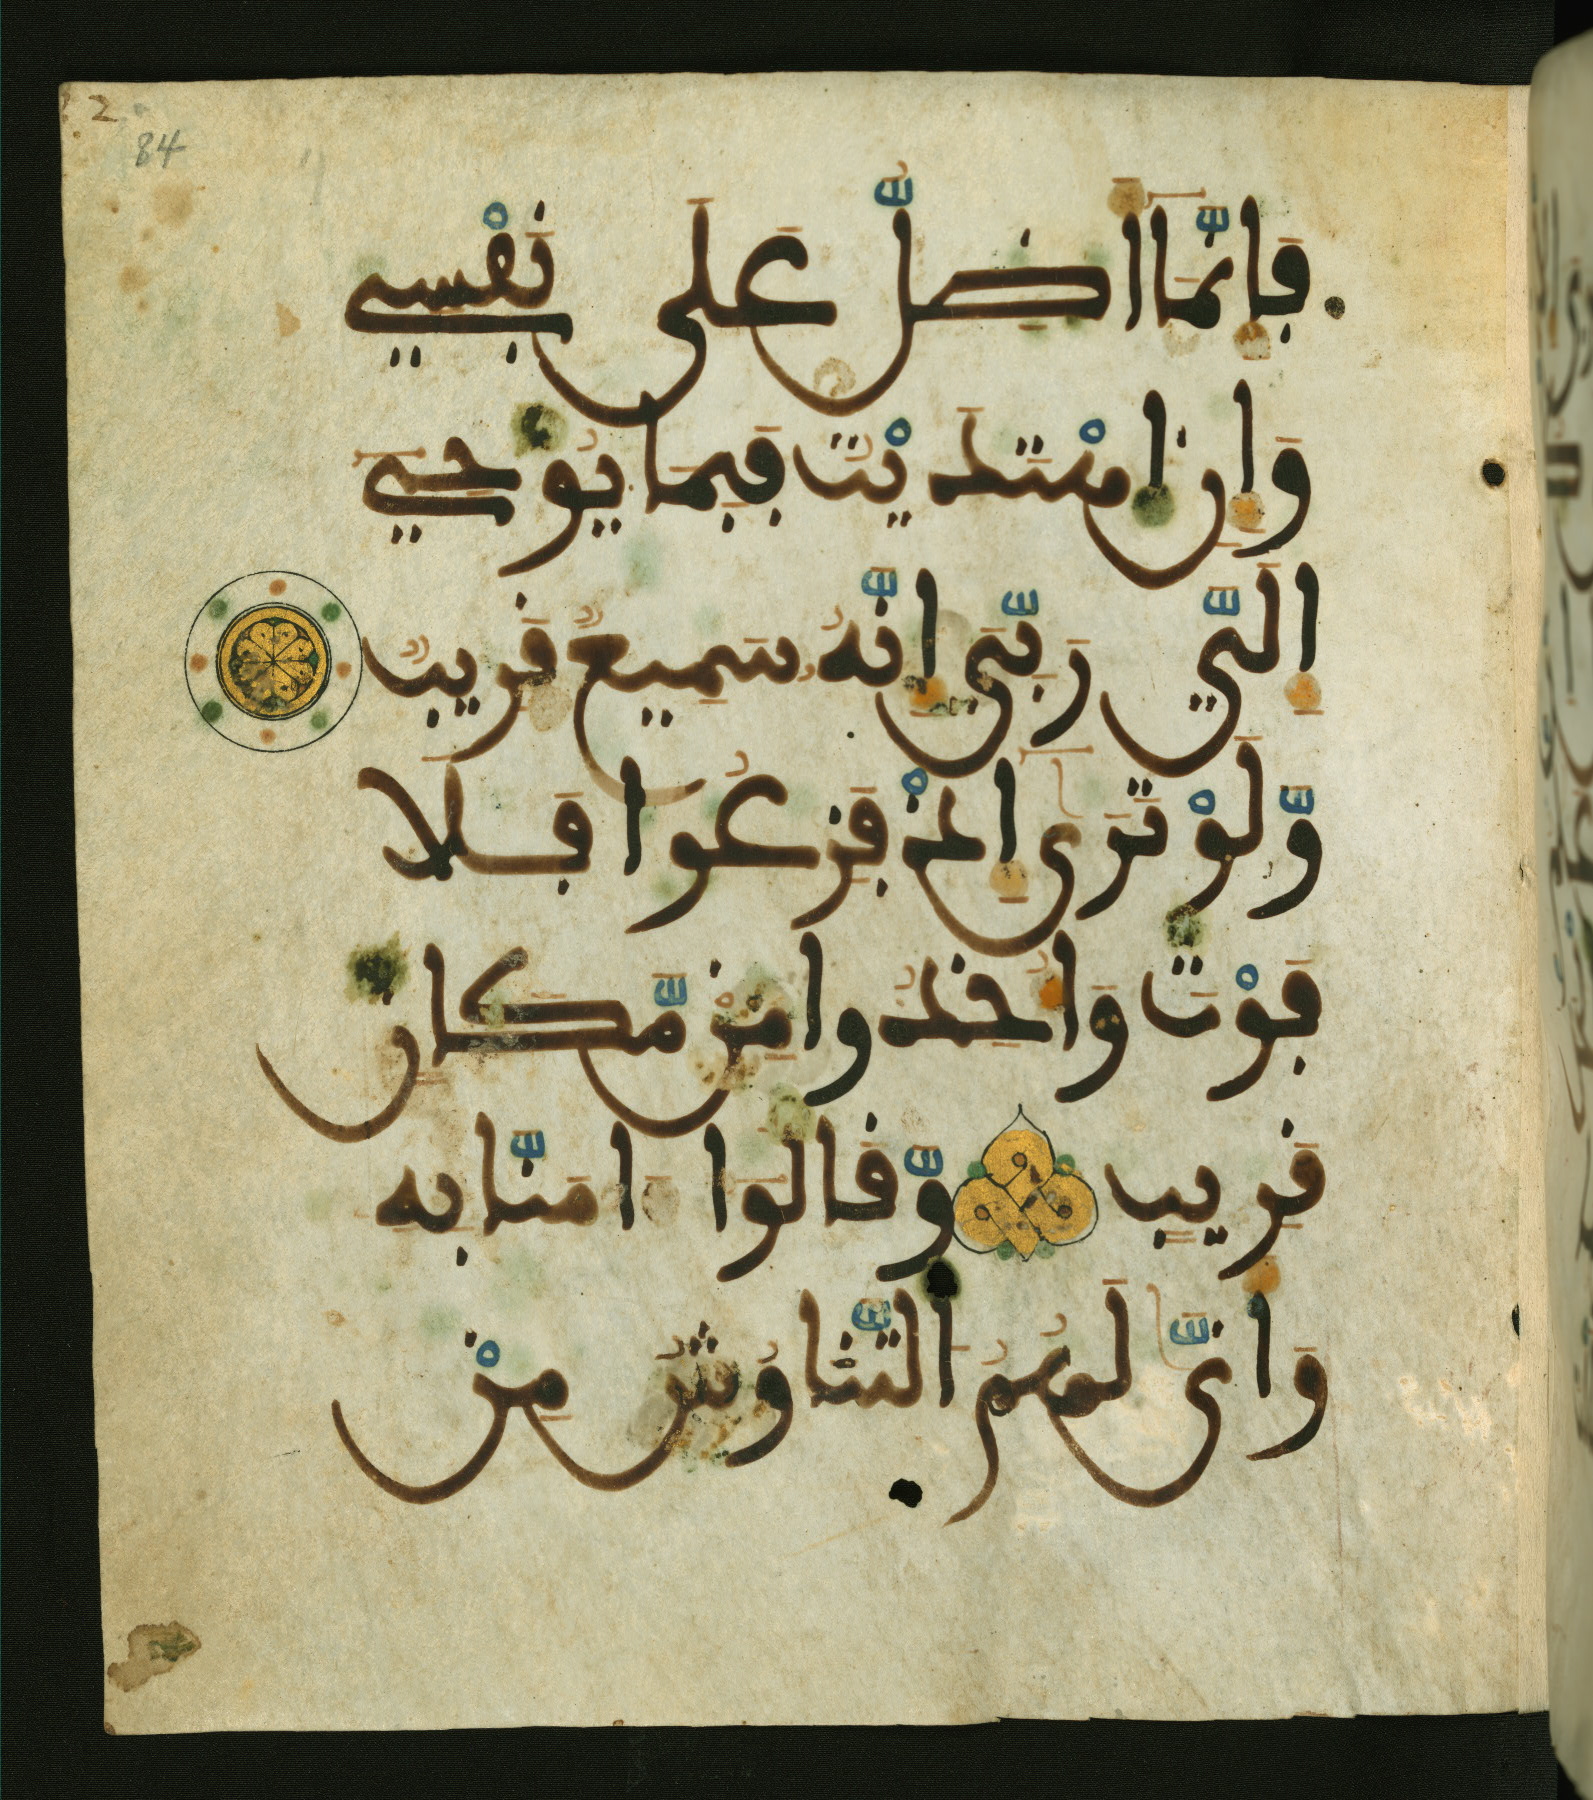 2
84
فَإِنَّمَا أَضِلُّ عَلَى نَفْسِي
وَإِنِ اهْتَدَيْتُ فَبِمَا يُوحِي
إِلَيَّ رَبِّي إِنَّهُ سَمِيعٌ قَرِيبٌ
وَّلَوْ تَرَى إِذْ فَزِعُوا فَلَا
فَوْتَ وَأُخِذُوا مِن مَّكَانٍ
قَرِيبٍ وَّقَالُوا ءَامَنَّا بِهِ
وَأَنَّى لَهُمُ التَّنَاوُشُ مِنْ